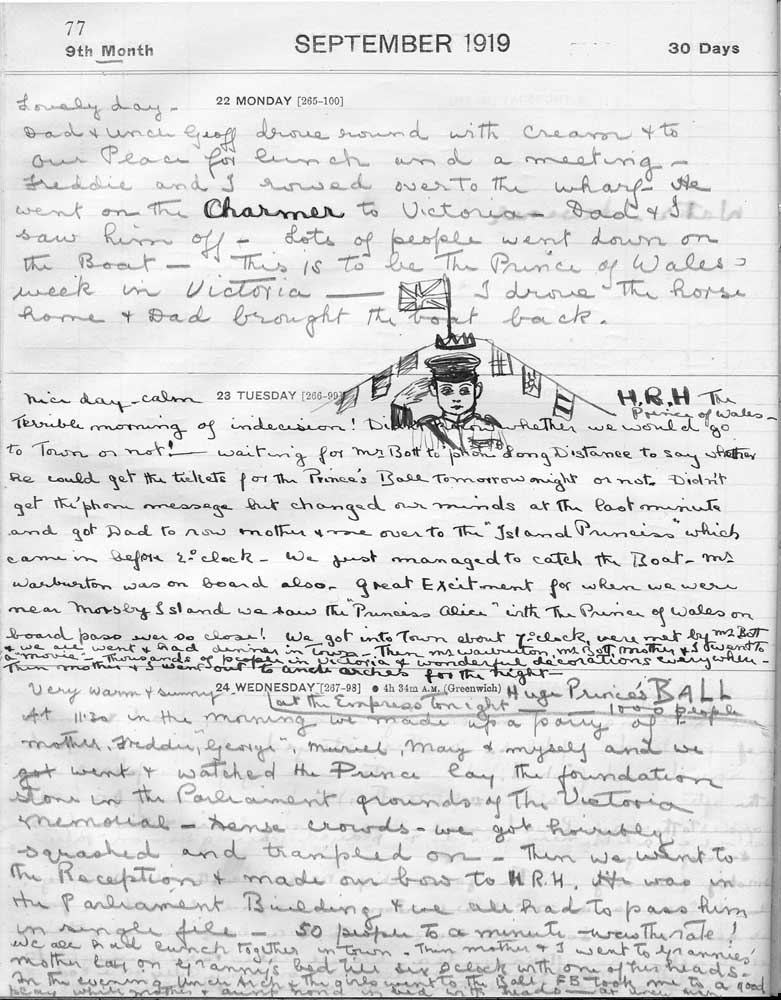 77
9th Month
SEPTEMBER 1919
30 Days
22 MONDAY [265-100]
Lovely day -
Dad & Uncle Geoff drove round with cream & to
our Place for lunch and a meeting -
Freddie and I rowed over to the wharf - He
went on the Charmer to Victoria - Dad & I
saw him off - Lots of people went down on
the Boat - This is to be The Prince of Wales'
week in Victoria — I drove the horse
home & Dad brought the boat back.
Nice day - calm 23 TUESDAY [266-99] H.R.H The
Prince of Wales -
Terrible morning of indecision! Didn't know whether we would go
to Town or not! - waiting for Mr Bott to 'phone Long Distance to say whether
he could get the tickets for the Prince's Ball tomorrow night or not. Didn't
get the 'phone message but changed our minds at the last minute
and got Dad to row mother & me over to the "Island Princess" which
came in before 2 o'clock - We just managed to catch the Boat - Mr
Warburton was on board also. Great Excitment for when we were
near Morsby Island we saw the "Princess Alice" with the Prince of Wales on
board pass ever so close! We got into Town about 7 o'clock, were met by Mr Bott
& we all went & had dinner in town - Then Mr Warburton, Mr Bott, Mother & I went to
a "movie" - Thousands of people in Victoria & wonderful decorations everywhere -
Then mother & I went out to Uncle Arches for the night -
Very warm & sunny 24 WEDNESDAY [267-98] ● 4h 34m A.M. (Greenwich) Huge Prince's BALL
at the Empress tonight — 1000 people
At 11:30 in the morning we made up a party of
mother, Freddie, "George", Muriel, Mary & myself and we
got went & watched the Prince lay the foundation
stone in the Parliament grounds of The Victoria
Memorial - dense crowds - we got horribly
squashed and trampled on - Then we went to
the Reception & made our bow to H.R.H. He was in
the Parliament Building & we all had to pass him
in single file - 50 people to a minute - was the rate!
We all had lunch together in town. Then mother & I went to Grannies'
mother lay on Granny's bed till six o'clock with one of her heads -
In the evening Uncle Arch & the girls went to the Ball. FB took me to a good
play while mother &